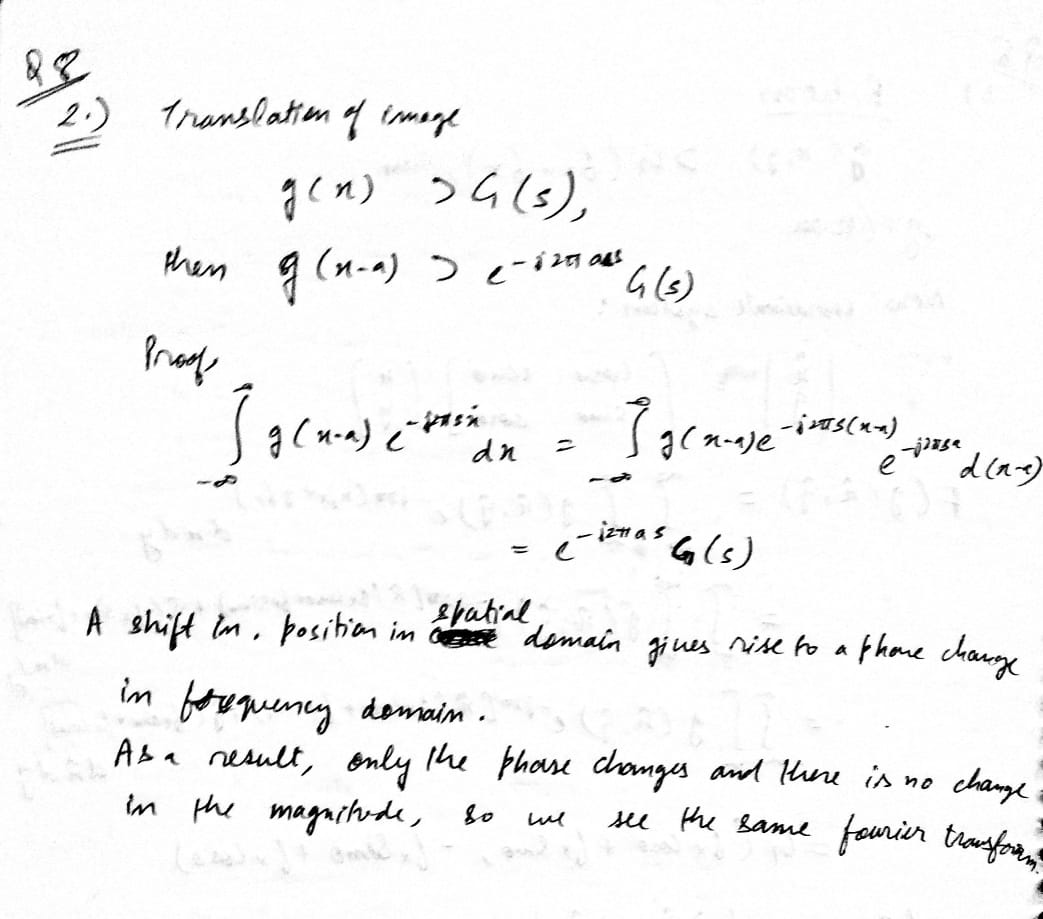 Q8
2.) Translation of image
g(x) ⊃ G(s),
then g(x-a) ⊃ e^{-i2πas} G(s)
Proof,
∫_{-∞}^{∞} g(x-a) e^{-j2πsx} dx = ∫_{-∞}^{∞} g(x-a)e^{-i2πs(x-a)} e^{-j2πsa} d(x-a)
= e^{-i2πas} G(s)
A shift in. position in spatial domain gives rise to a phase change
in frequency domain.
As a result, only the phase changes and there is no change
in the magnitude, so we see the same fourier transform.